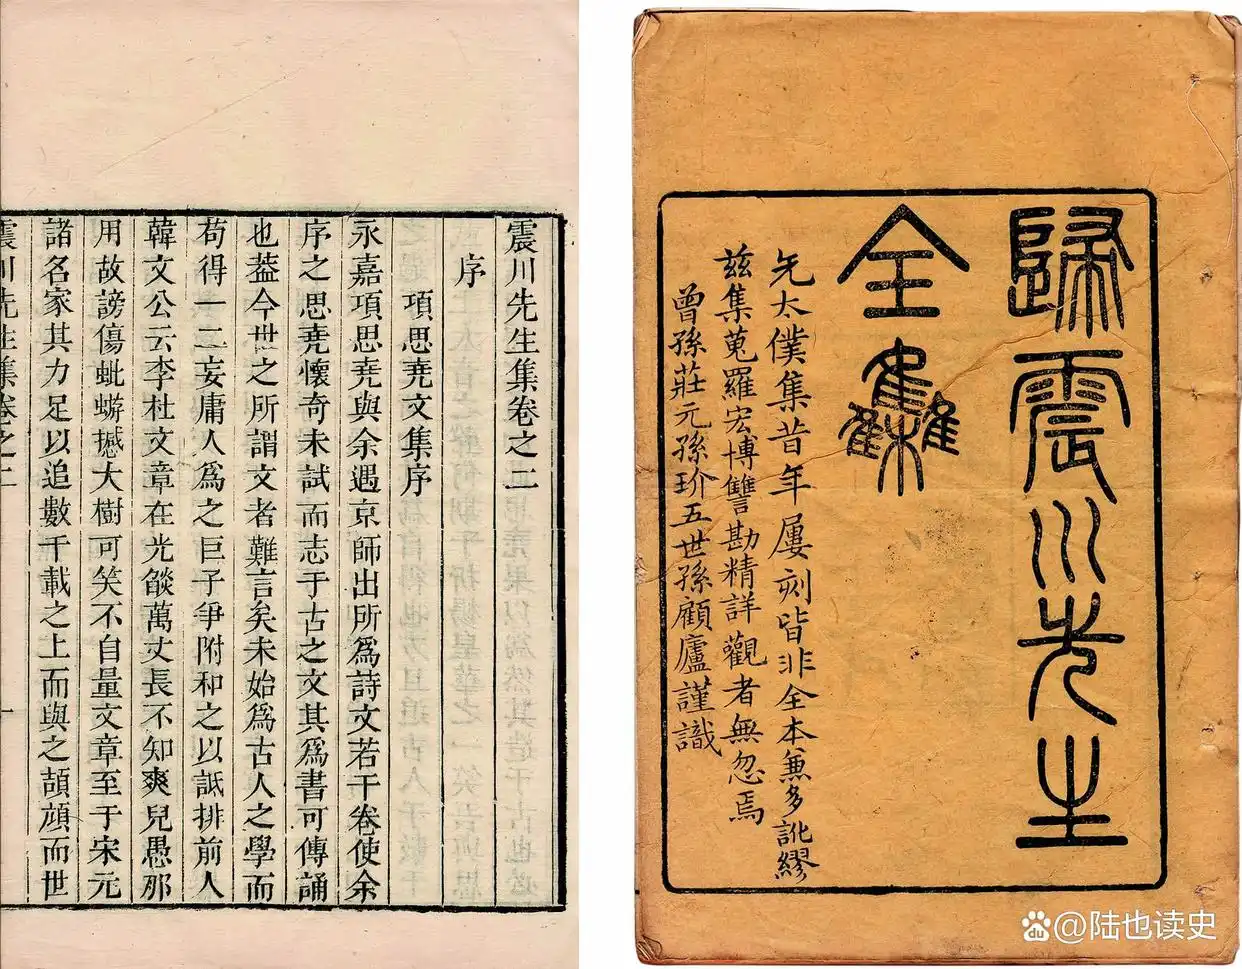 震川先生集卷之二
序
項思堯文集序
永嘉項思堯與余遇京師出所爲詩文若干卷使余
序之思堯懷奇未試而志于古之文其爲書可傳誦
也蓋今世之所謂文者難言矣未始爲古人之學而
苟得一二妄庸人爲之巨子爭附和之以詆排前人
韓文公云李杜文章在光燄萬丈長不知羣兒愚那
用故謗傷蚍蜉撼大樹可笑不自量文章至于宋元
諸名家其力足以追數千載之上而與之頡頏而世
震川先生集卷之二
一
歸震川先生
全集
先太僕集昔年屢刻皆非全本兼多訛繆
茲集蒐羅宏博讐勘精詳觀者無忽焉
曾孫莊元孫玠五世孫顧廬謹識
Baidu @陆也读史